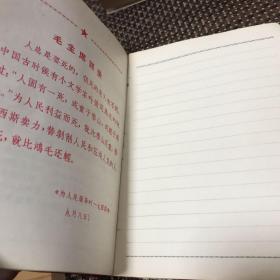 毛主席语录
人总是要死的，但死的意
中国古时候有个文学家叫做司马迁的
过：“人固有一死，或重于泰山，或轻于
。”为人民利益而死，就比泰山还重；替
西斯卖力，替剥削人民和压迫人民的人
死，就比鸿毛还轻。
《为人民服务》（一九四四年
九月八日）